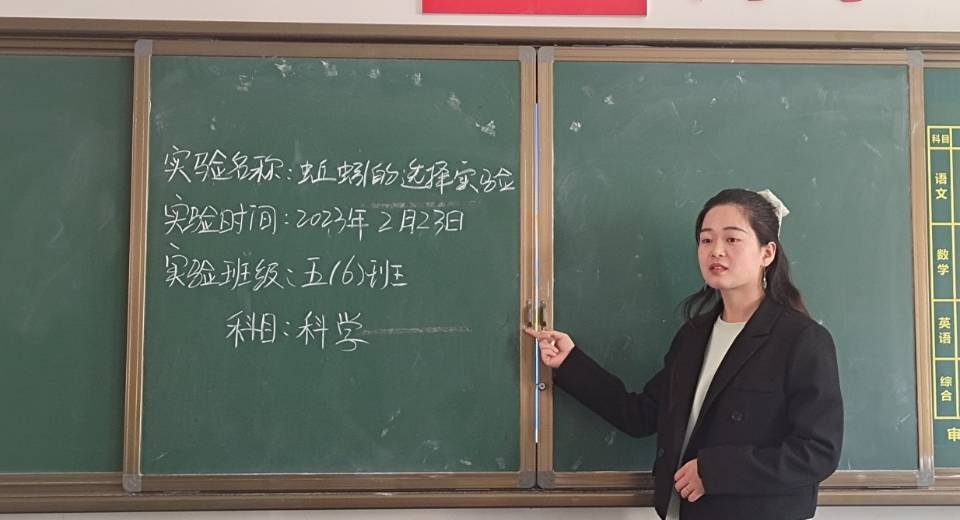 实验名称:蚯蚓的选择实验
实验时间:2023年2月23日
实验班级:五(6)班
科目:科学
科目
语文
数学
英语
综合
审